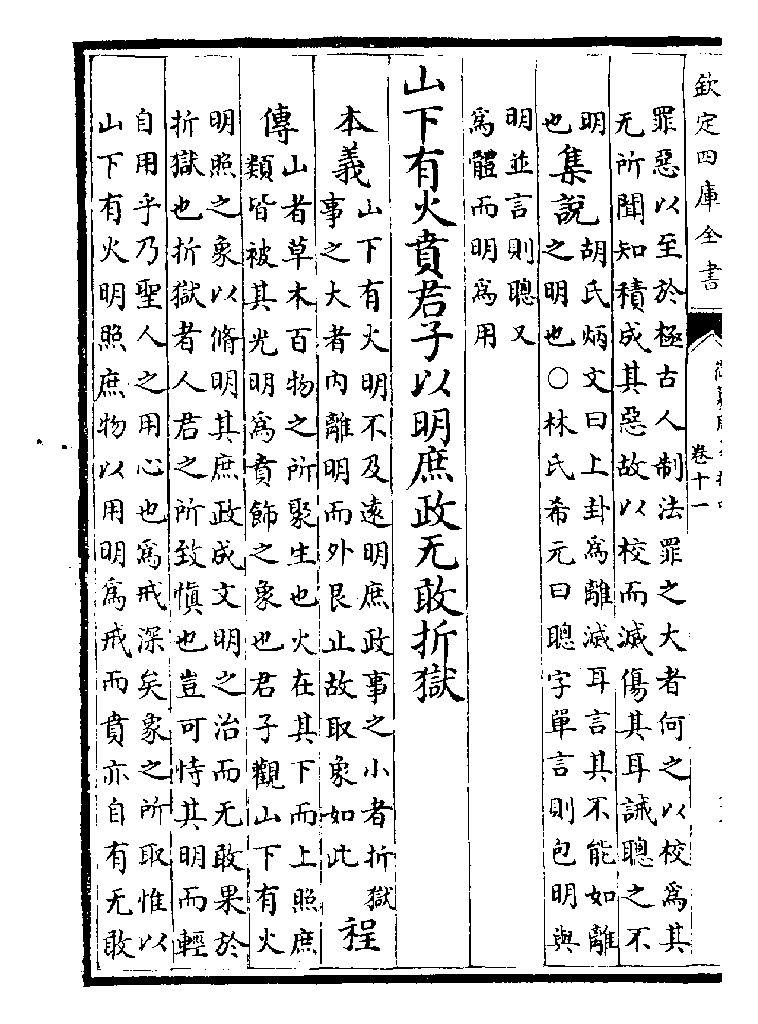 欽定四庫全書
卷十一
罪惡以至於極古人制法罪之大者何之以校爲其
无所聞知積成其惡故以校而滅傷其耳誡聰之不
明
也
集說
胡氏炳文曰上卦爲離滅耳言其不能如離
之明也○林氏希元曰聰字單言則包明與
明並言則聰又
爲體而明爲用
山下有火賁君子以明庶政无敢折獄
本義
山下有火明不及遠明庶政事之小者折獄
事之大者內離明而外艮止故取象如此
程
傳
山者草木百物之所聚生也火在其下而上照庶
類皆被其光明爲賁飾之象也君子觀山下有火
明照之象以脩明其庶政成文明之治而无敢果於
折獄也折獄者人君之所致慎也豈可恃其明而輕
自用乎乃聖人之用心也爲戒深矣象之所取惟以
山下有火明照庶物以用明爲戒而賁亦自有无敢